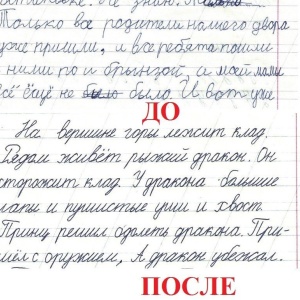 Только все родители нашего двора
уже пришли, и все ребята пошли
с ними по и брынзой, а моей мамы
всё ещё не было было. И вот уже
ДО
На вершине горы лежит клад.
Рядом живёт рыжий дракон. Он
сторожит клад. У дракона большие
лапы и пушистые уши и хвост.
Принц решил одолеть дракона. При-
шёл с оружием, А дракон убежал.
ПОСЛЕ